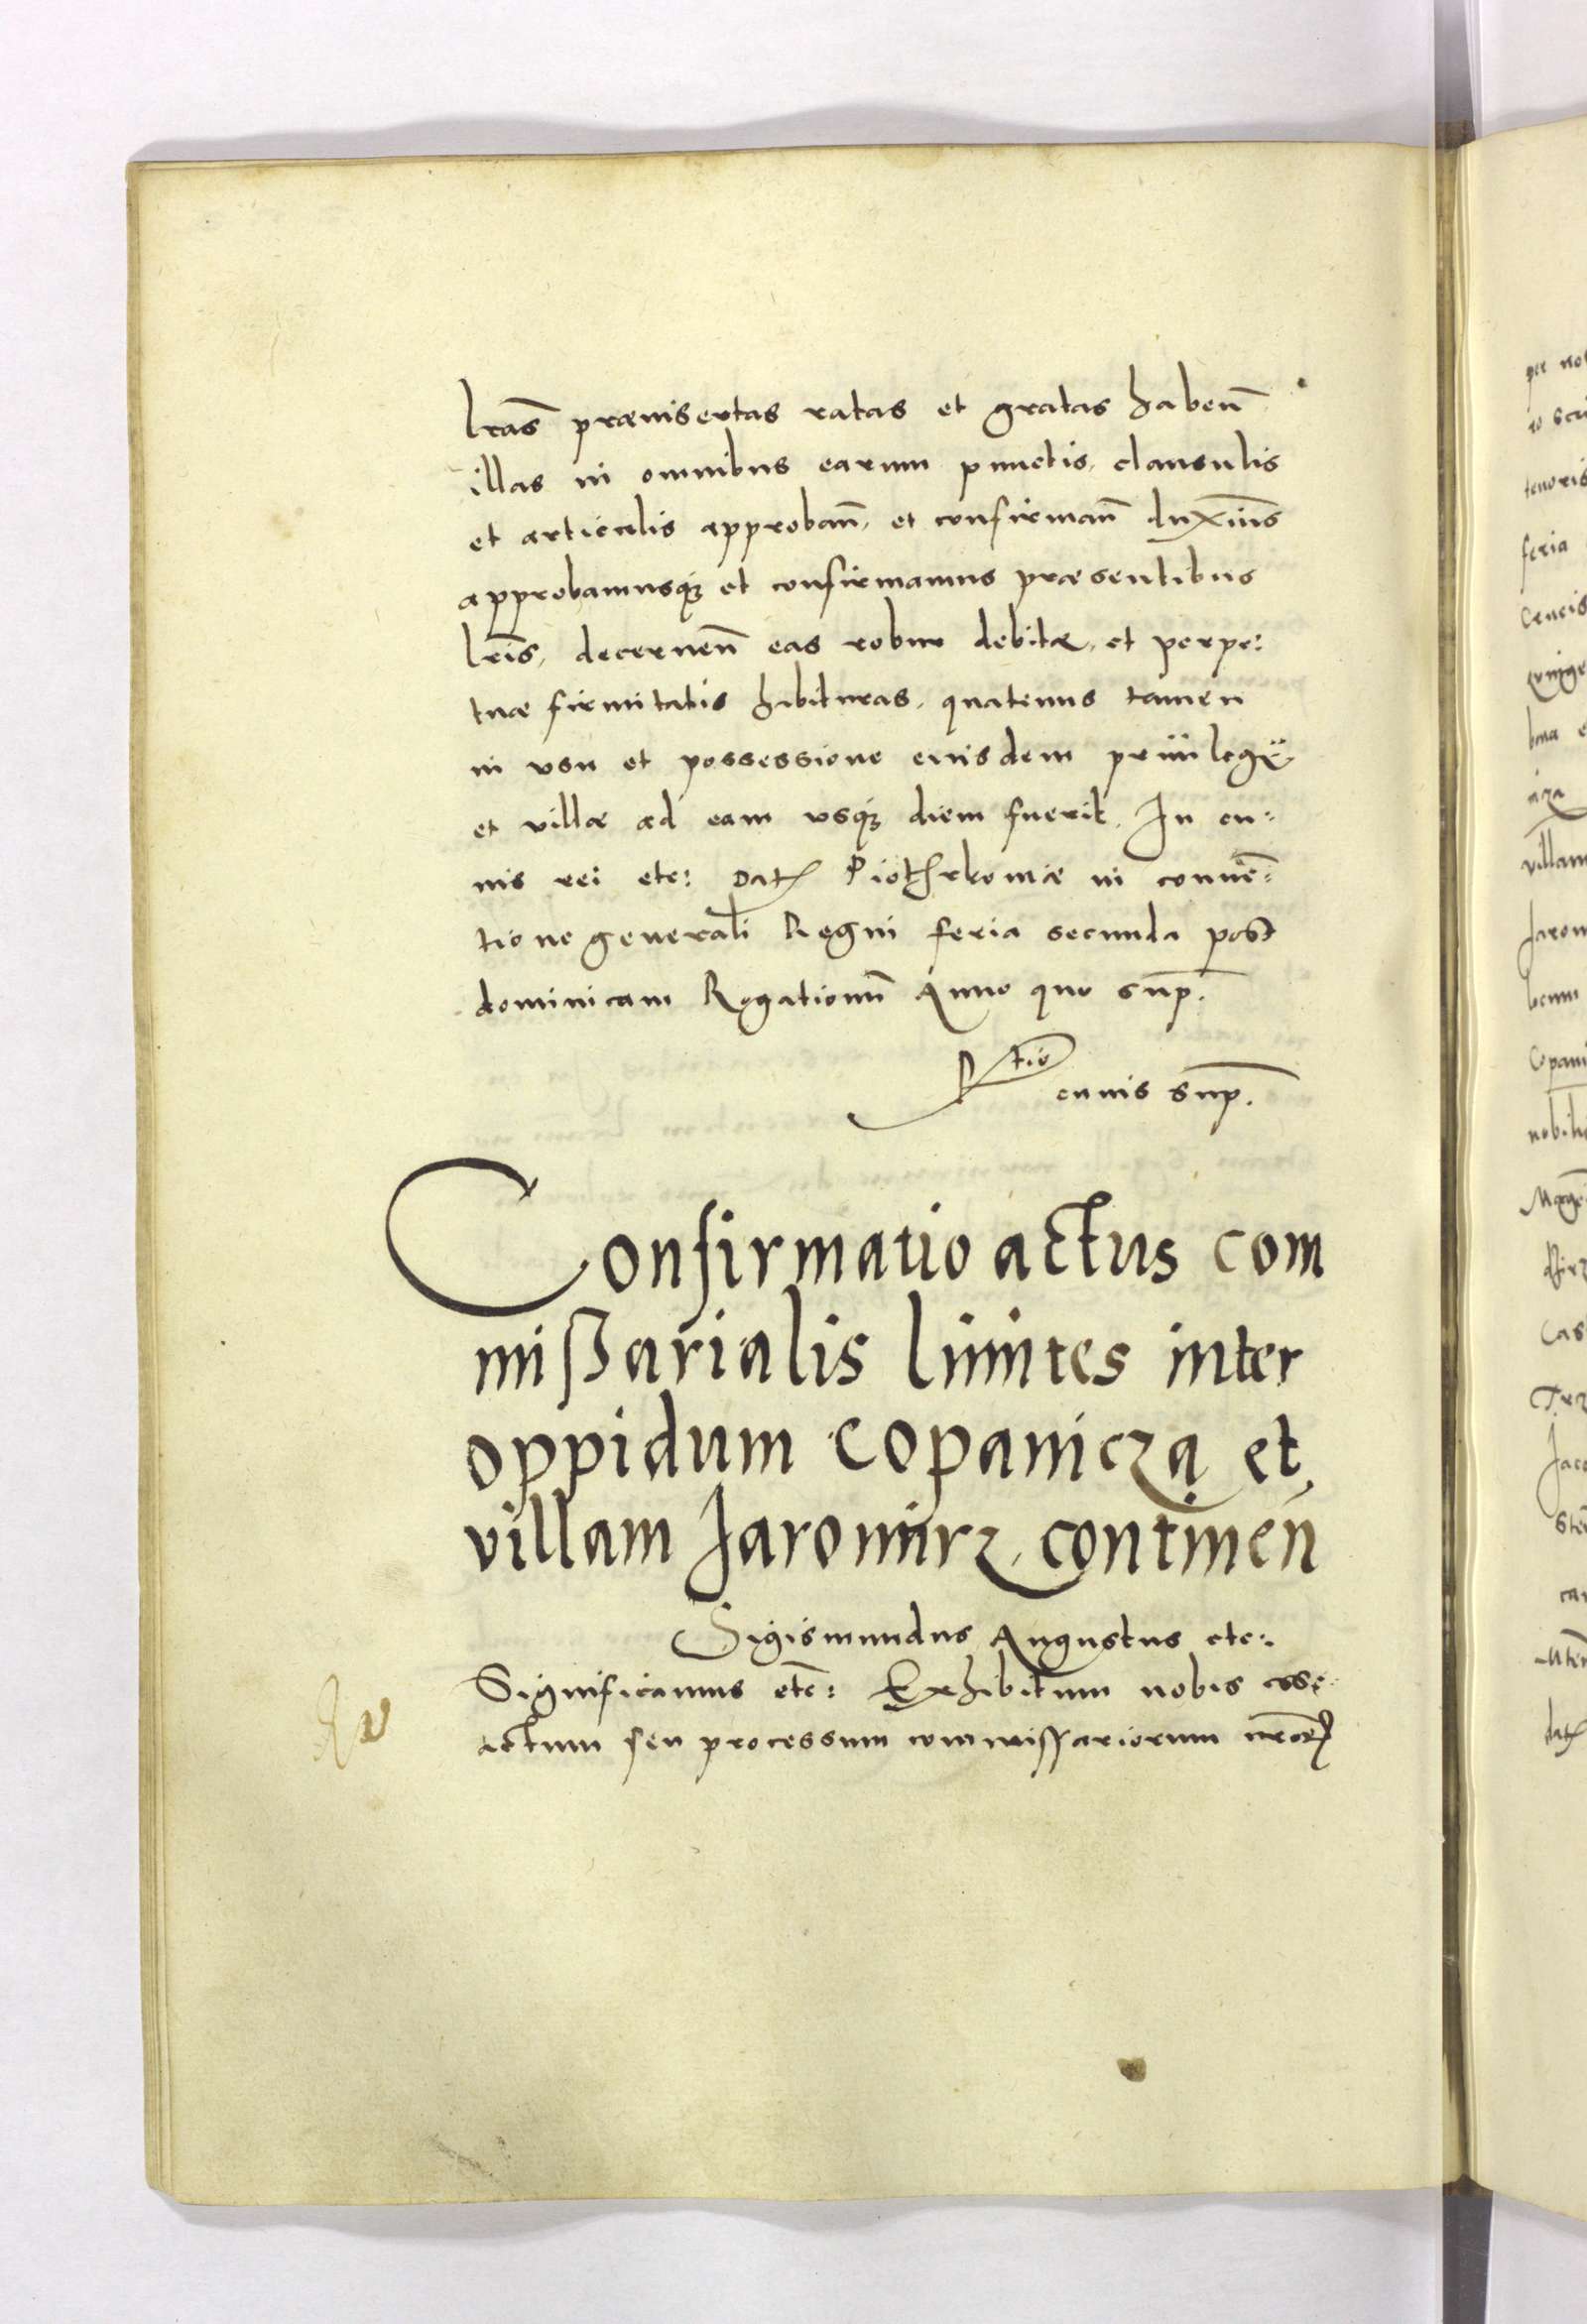 lr̃as præinsertas ratas et gratas habeñ
illas in omnibus earum punctis, clausulis
et articulis approbañ, et confirmañ duximus
approbamusq́ꝫ et confirmamus præsentibus
lr̃is, decerneñ eas robur debitæ, et perpe:
tuæ firmitatis habituras, quatenus tamen
in vsu et possessione eiusdem priuilegÿ
et villæ ad eam vsq́ꝫ diem fuerit. In cu:
ius rei etc: Datꝭ Piothrkowiæ in conuẽ:
tione generali Regni feria secunda post
dominicam Rogationũ Anno quo sup̃.
Rtio
cuius sup̃.
Confirmatio actus com
mißarialis limites inter
oppidum Copanicza et
villam Jaromirz, contineñ
Sigismundus Augustus etc:
Significamus etc̃: Exhibitum nobis esse
actum seu processum commissariorum nr̃orꝝ
per no
tenoris
feria
Crucis
villam
Jarom
Copani
nobili
Cas
Jaco
datꝭ